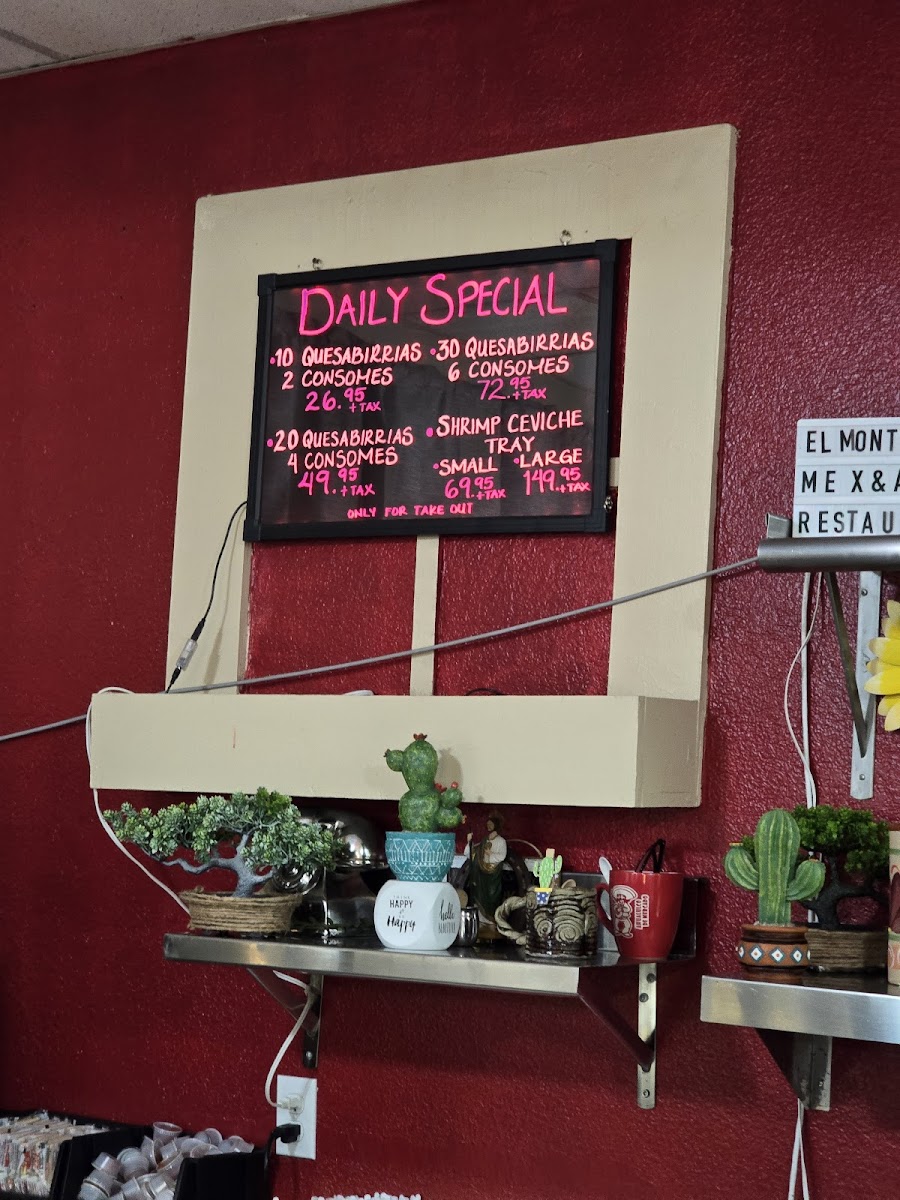 DAILY SPECIAL
•10 QUESABIRRIAS
2 CONSOMES
26.95 +TAX
•30 QUESABIRRIAS
6 CONSOMES
72.95 +TAX
•20 QUESABIRRIAS
4 CONSOMES
49.95 +TAX
•SHRIMP CEVICHE
TRAY
•SMALL •LARGE
69.95 +TAX 149.95 +TAX
ONLY FOR TAKE OUT
EL MONT
ME X & A
RESTAU
HAPPY
Happy
hello